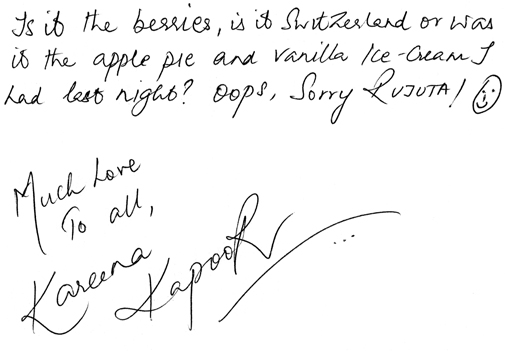 Is it the berries, is it Switzerland or was
it the apple pie and vanilla Ice-Cream I
had last night? Oops, Sorry RUJUTA! ☺
Much Love
To all,
Kareena
Kapoor
...